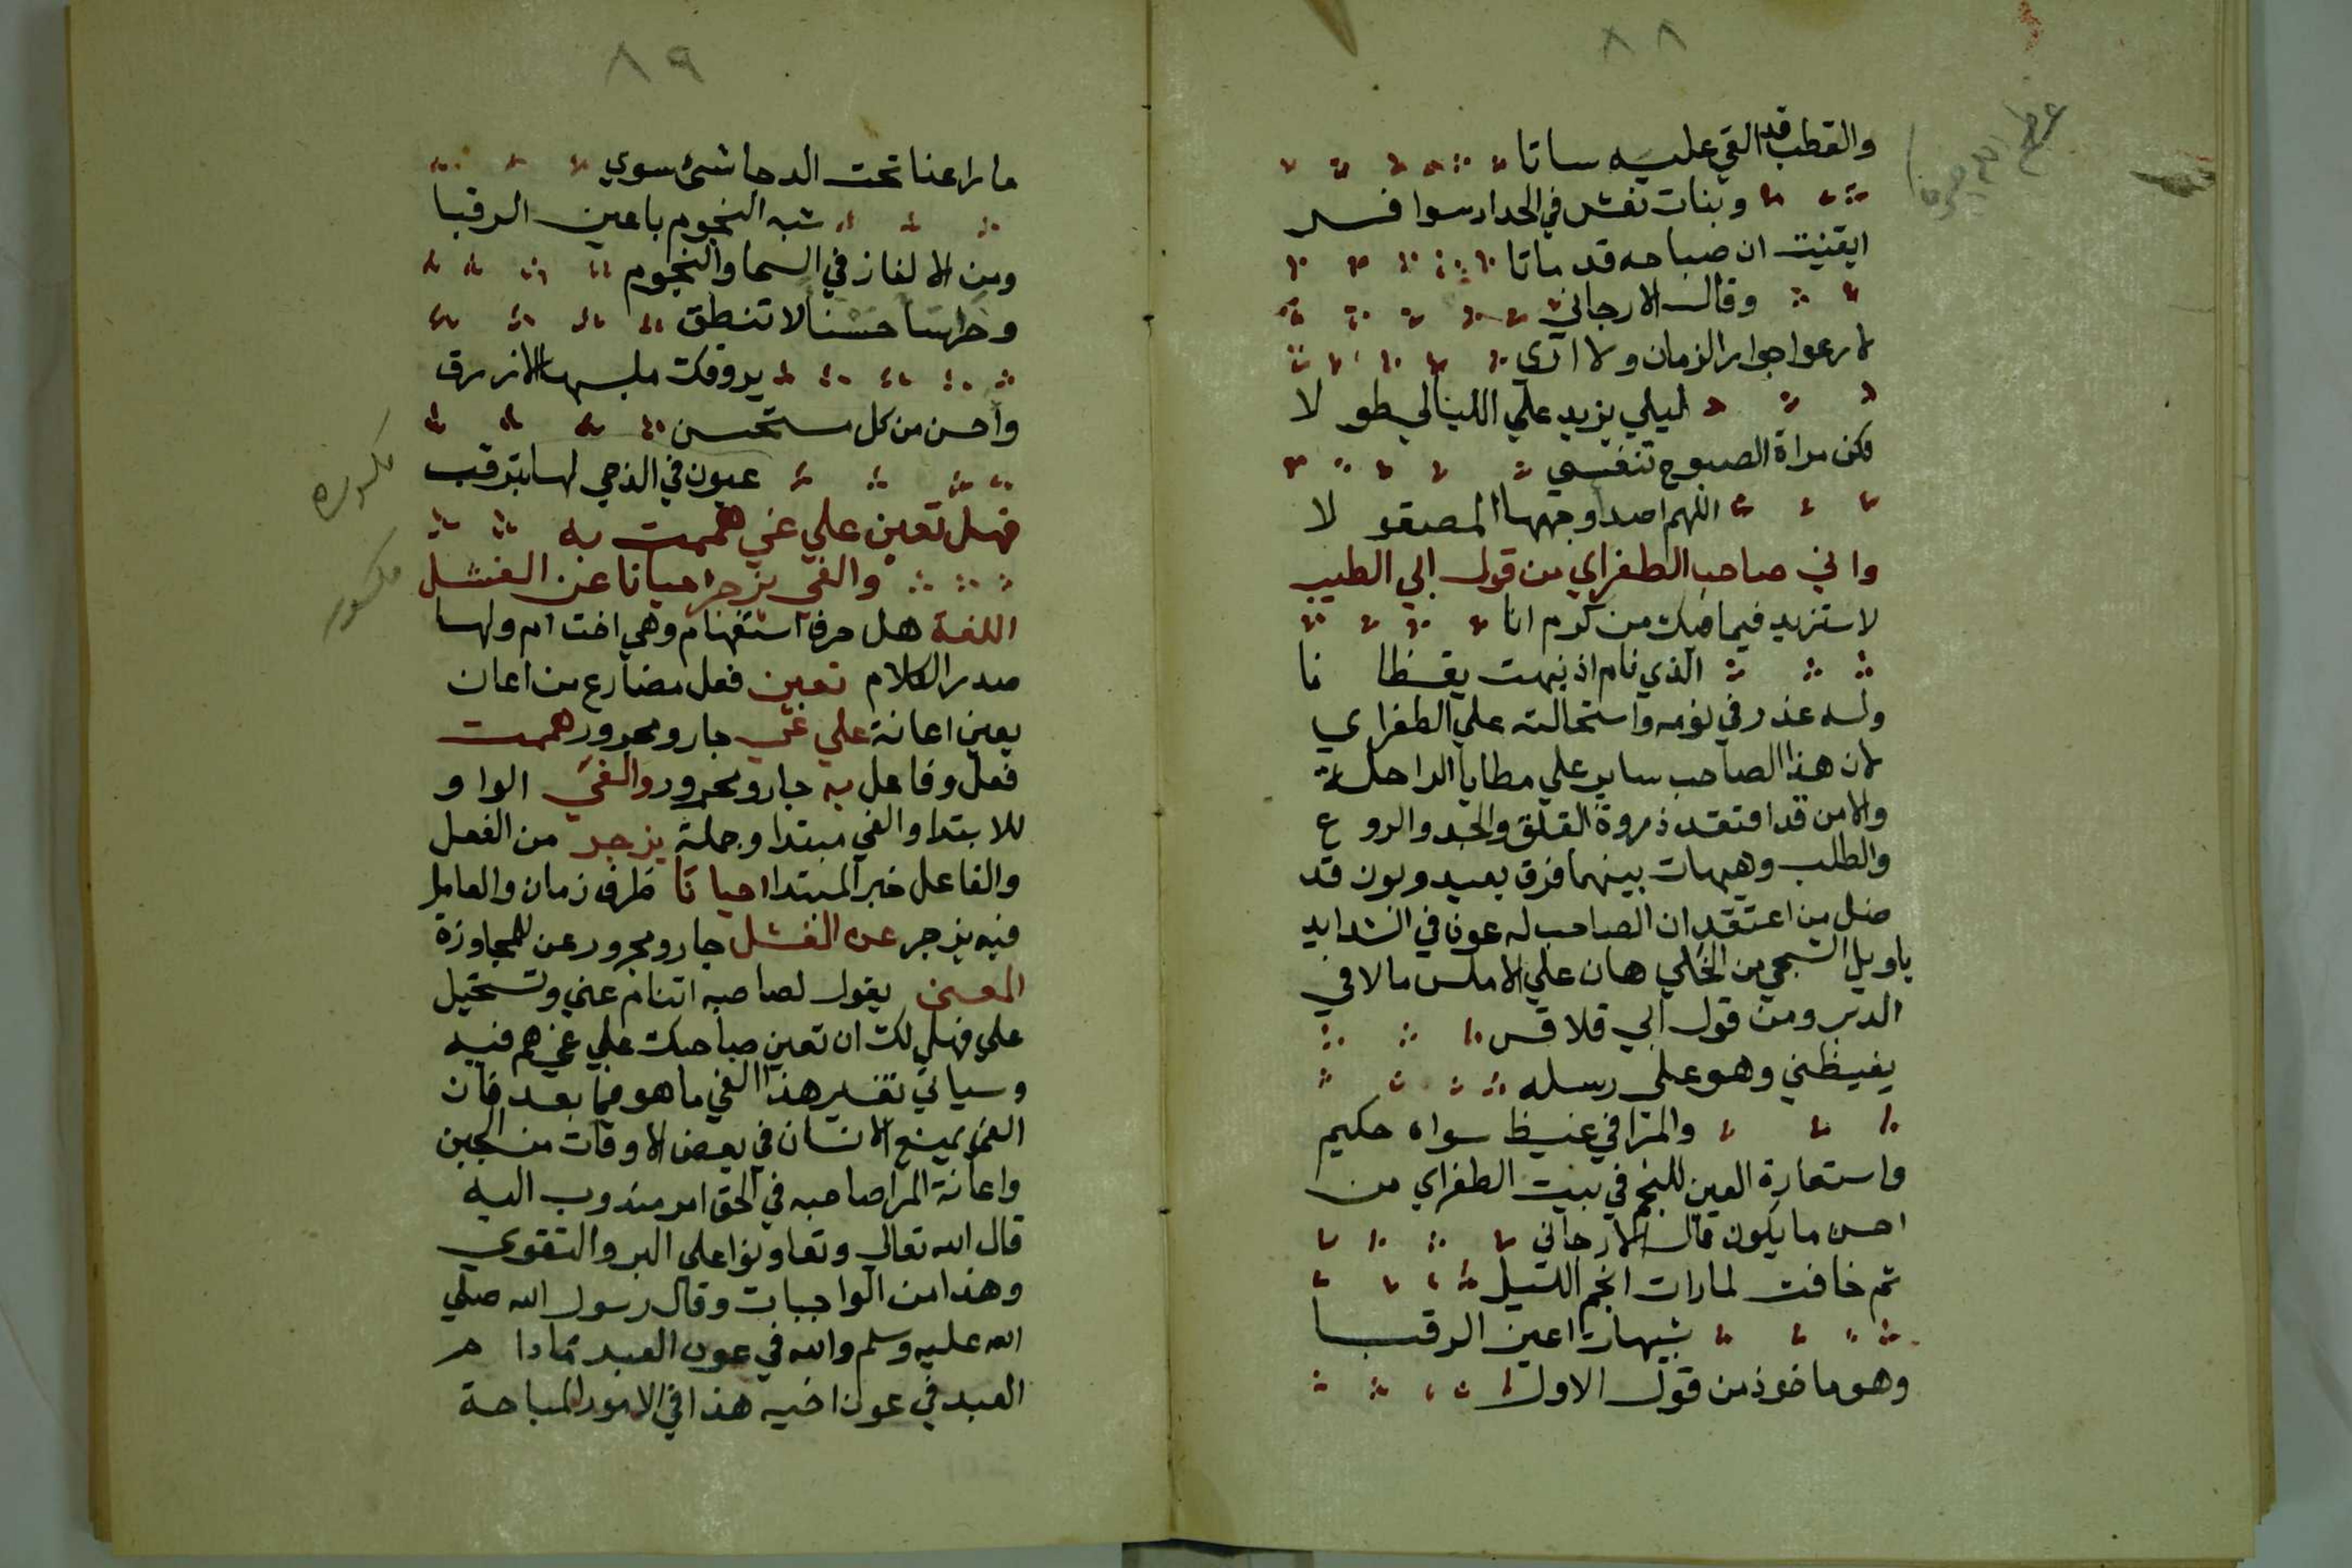 ٨٨
والقطب قد القي عليه ساتا
وبنات نعش في الحداد سوافر
ايقنيت ان صباحه قد ماتا
وقال الارجاني
لا رعوا جوار الزمان ولا ارى
ليلي يزيد علي الليالي طولا
فكن مراة الصبوح تنفسي
اللهم اصدا وجهها المصقولا
واني صاحب الطغراي من قول ابي الطيب
لا ستزيد فيما فيك من كرم انا
الذي نام اذ نبهت يقظانا
وله عذر في نومه واستحالته علي الطغراي
لان هذا الصاحب ساير علي مطايا الراحلة
والامن قد افتقد ذروة القلق والجد والروع
والطلب وهيهات بينهما فرق بعيد وبون قد
ضل من اعتقد ان الصاحب له عونا في الشدايد
ياويل الشجي من الخلي هان علي الاملس مالاقي
الدبر ومن قول ابي قلاقس
يغيظني وهو على رسله
والمرا في غيظ سواه حكيم
واستعارة العين للنجم في بيت الطغراي من
احسن ما يكون قال الارجاني
ثم خافت لما رات انجم الليل
شبيهات اعين الرقبا
وهو ماخوذ من قول الاول
٨٩
ما راعنا تحت الدجا شئ سوي
شبه النجوم باعين الرقبا
ومن الالغاز في السما والنجوم
وخراسا حسنا لا تنطق
يروقك ملبسها الازرق
واحسن من كل مستحسن
عيون في الدجي لها ترقب
فهل تعين علي غي هممت به
والغي يزجر احيانا عن الفشل
اللغة هل حرف استفهام وهي اخت ام ولها
صدر الكلام تعين فعل مضارع من اعان
يعين اعانة علي غي جار ومجرور هممت
فعل وفاعل به جار ومجرور والغي الواو
للابتدا والغي مبتدا وجملة يزجر من الفعل
والفاعل خبر المبتدا احيانا ظرف زمان والعامل
فيه يزجر عن الفشل جار ومجرور عن للمجاوزة
المعنى يقول لصاحبه اتنام عني وتستحيل
علي فهل لك ان تعين صاحبك علي غي هم فيه
وسياتي تفسير هذا الغي ما هو فيما بعد فان
الغي يمنع الانسان في بعض الاوقات من الجبن
واعانة المرا صاحبه في الحق امر مندوب اليه
قال الله تعالي وتعاونوا على البر والتقوي
وهذا من الواجبات وقال رسول الله صلي
الله عليه وسلم والله في عون العبد مادام
العبد في عون اخيه هذا في الامور المباحة
مكسوره
مكسور